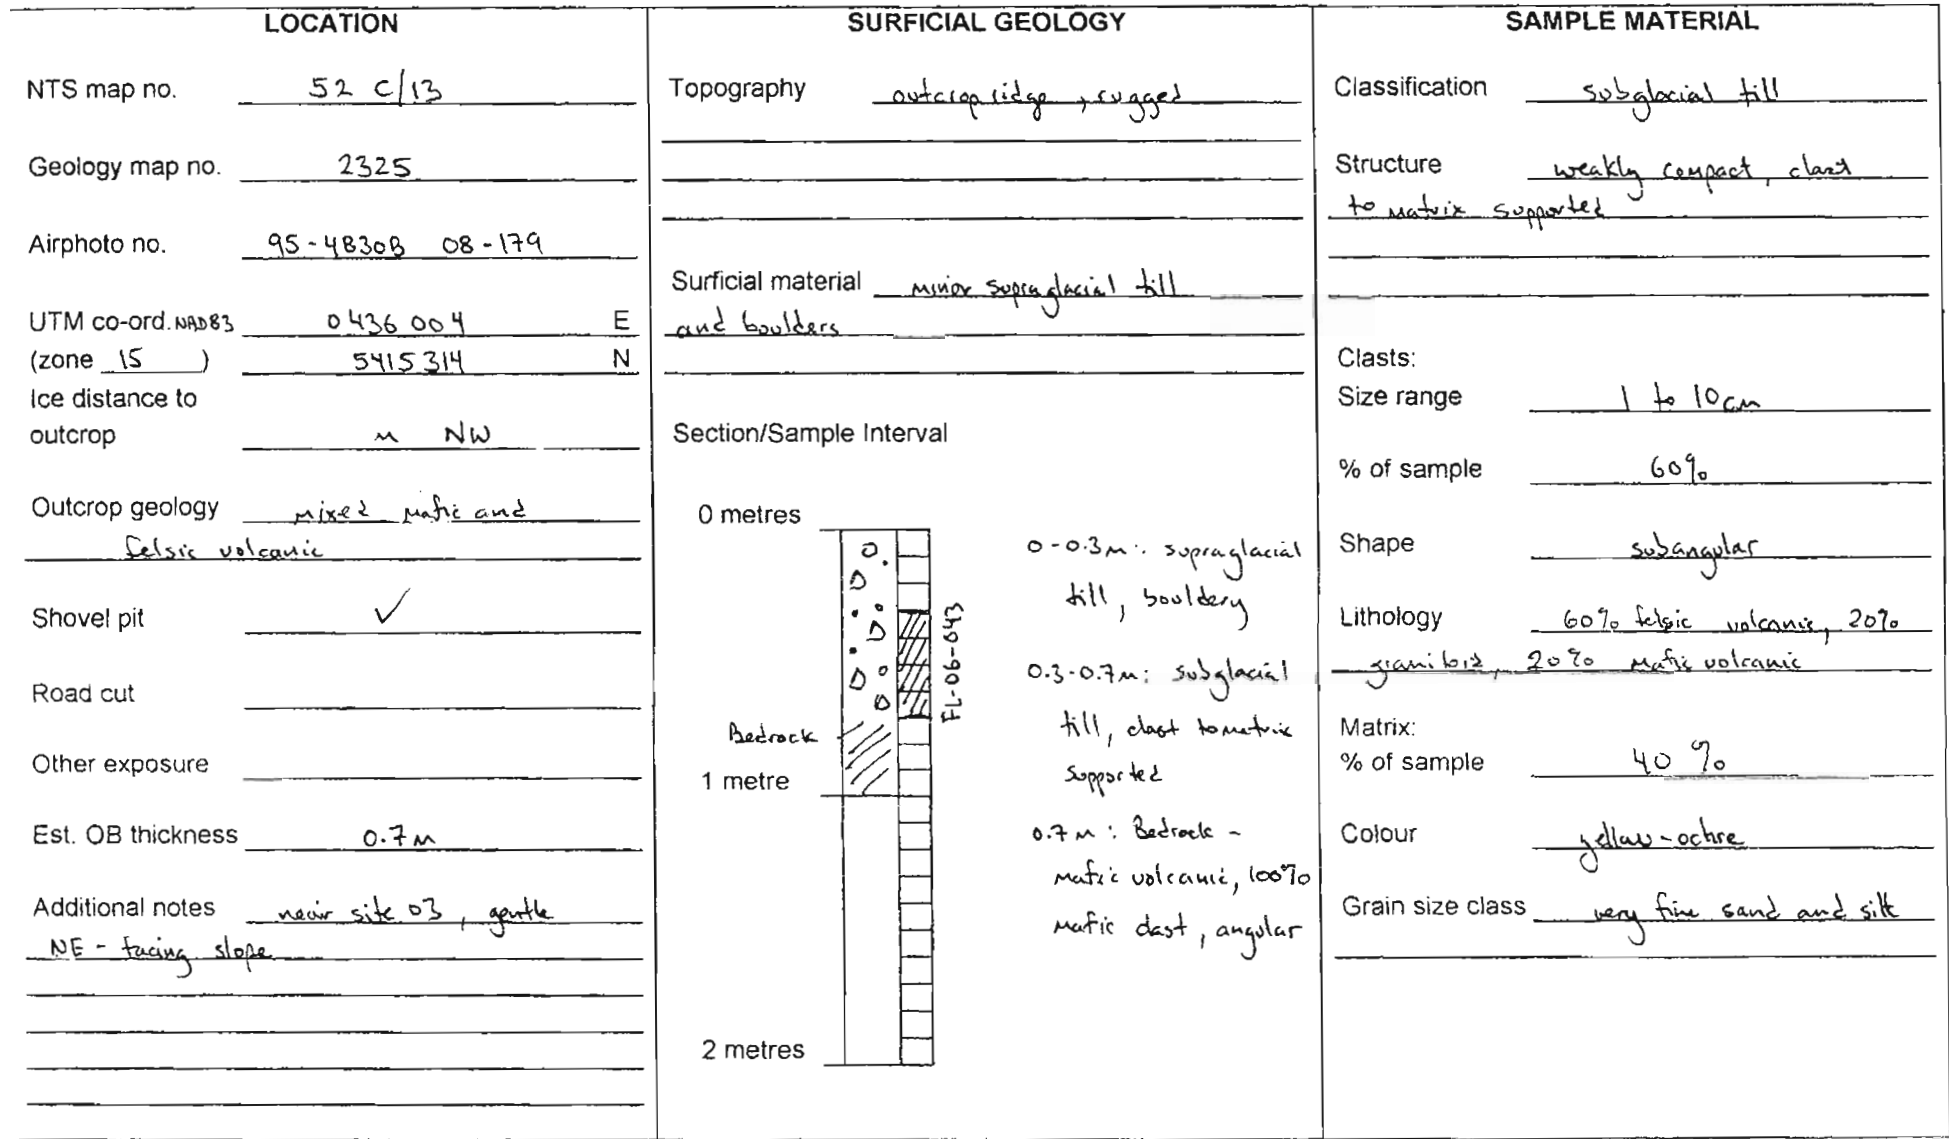 LOCATION
NTS map no. 52 C/13
Geology map no. 2325
Airphoto no. 95-4830B 08-179
UTM co-ord. NAD83 0436004 E
(zone 15 ) 5415314 N
Ice distance to
outcrop m NW
Outcrop geology mixed mafic and
felsic volcanic
Shovel pit ✓
Road cut
Other exposure
Est. OB thickness 0.7m
Additional notes near site 03, gentle
NE - facing slope
SURFICIAL GEOLOGY
Topography outcrop ridge, rugged
Surficial material minor supraglacial till
and boulders
Section/Sample Interval
0 metres
Bedrock
1 metre
2 metres
FL-06-043
0-0.3m: supraglacial
till, bouldery
0.3-0.7m: subglacial
till, clast to matrix
supported
0.7m: Bedrock -
mafic volcanic, 100%
mafic clast, angular
SAMPLE MATERIAL
Classification subglacial till
Structure weakly compact, clast
to matrix supported
Clasts:
Size range 1 to 10cm
% of sample 60%
Shape subangular
Lithology 60% felsic volcanic, 20%
granitoid, 20% mafic volcanic
Matrix:
% of sample 40 %
Colour yellow-ochre
Grain size class very fine sand and silt